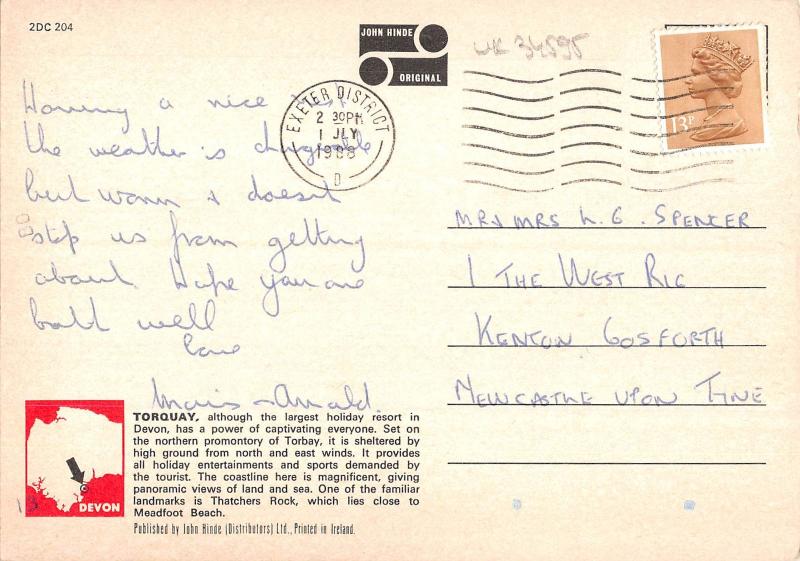 2DC 204
JOHN HINDE
ORIGINAL
UK 34595
Having a nice rest
the weather is changeable
but warm & doesnt
stop us from getting
about. Hope you are
both well
Love
EXETER DISTRICT
2 30PM
1 JLY
1988
D
13P
MR & MRS L. G. SPENCER
1 THE WEST RIG
KENTON GOSFORTH
NEWCASTLE UPON TYNE
DEVON
13
TORQUAY, although the largest holiday resort in
Devon, has a power of captivating everyone. Set on
the northern promontory of Torbay, it is sheltered by
high ground from north and east winds. It provides
all holiday entertainments and sports demanded by
the tourist. The coastline here is magnificent, giving
panoramic views of land and sea. One of the familiar
landmarks is Thatchers Rock, which lies close to
Meadfoot Beach.
Published by John Hinde (Distributors) Ltd., Printed in Ireland.